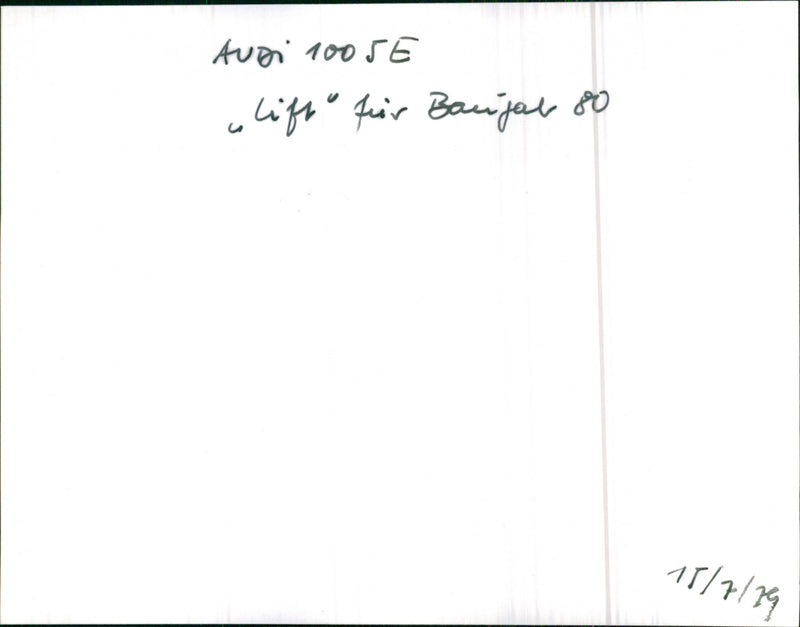 AUDi 100 5E
„Lift“ für Baujahr 80
15/7/79